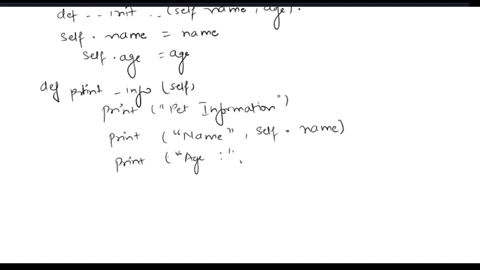 def -- init -- (self name, age):
self. name = name
self. age = age
def print _ info (self)
print ("Pet Information")
print ("Name", self. name)
print ("Age :",